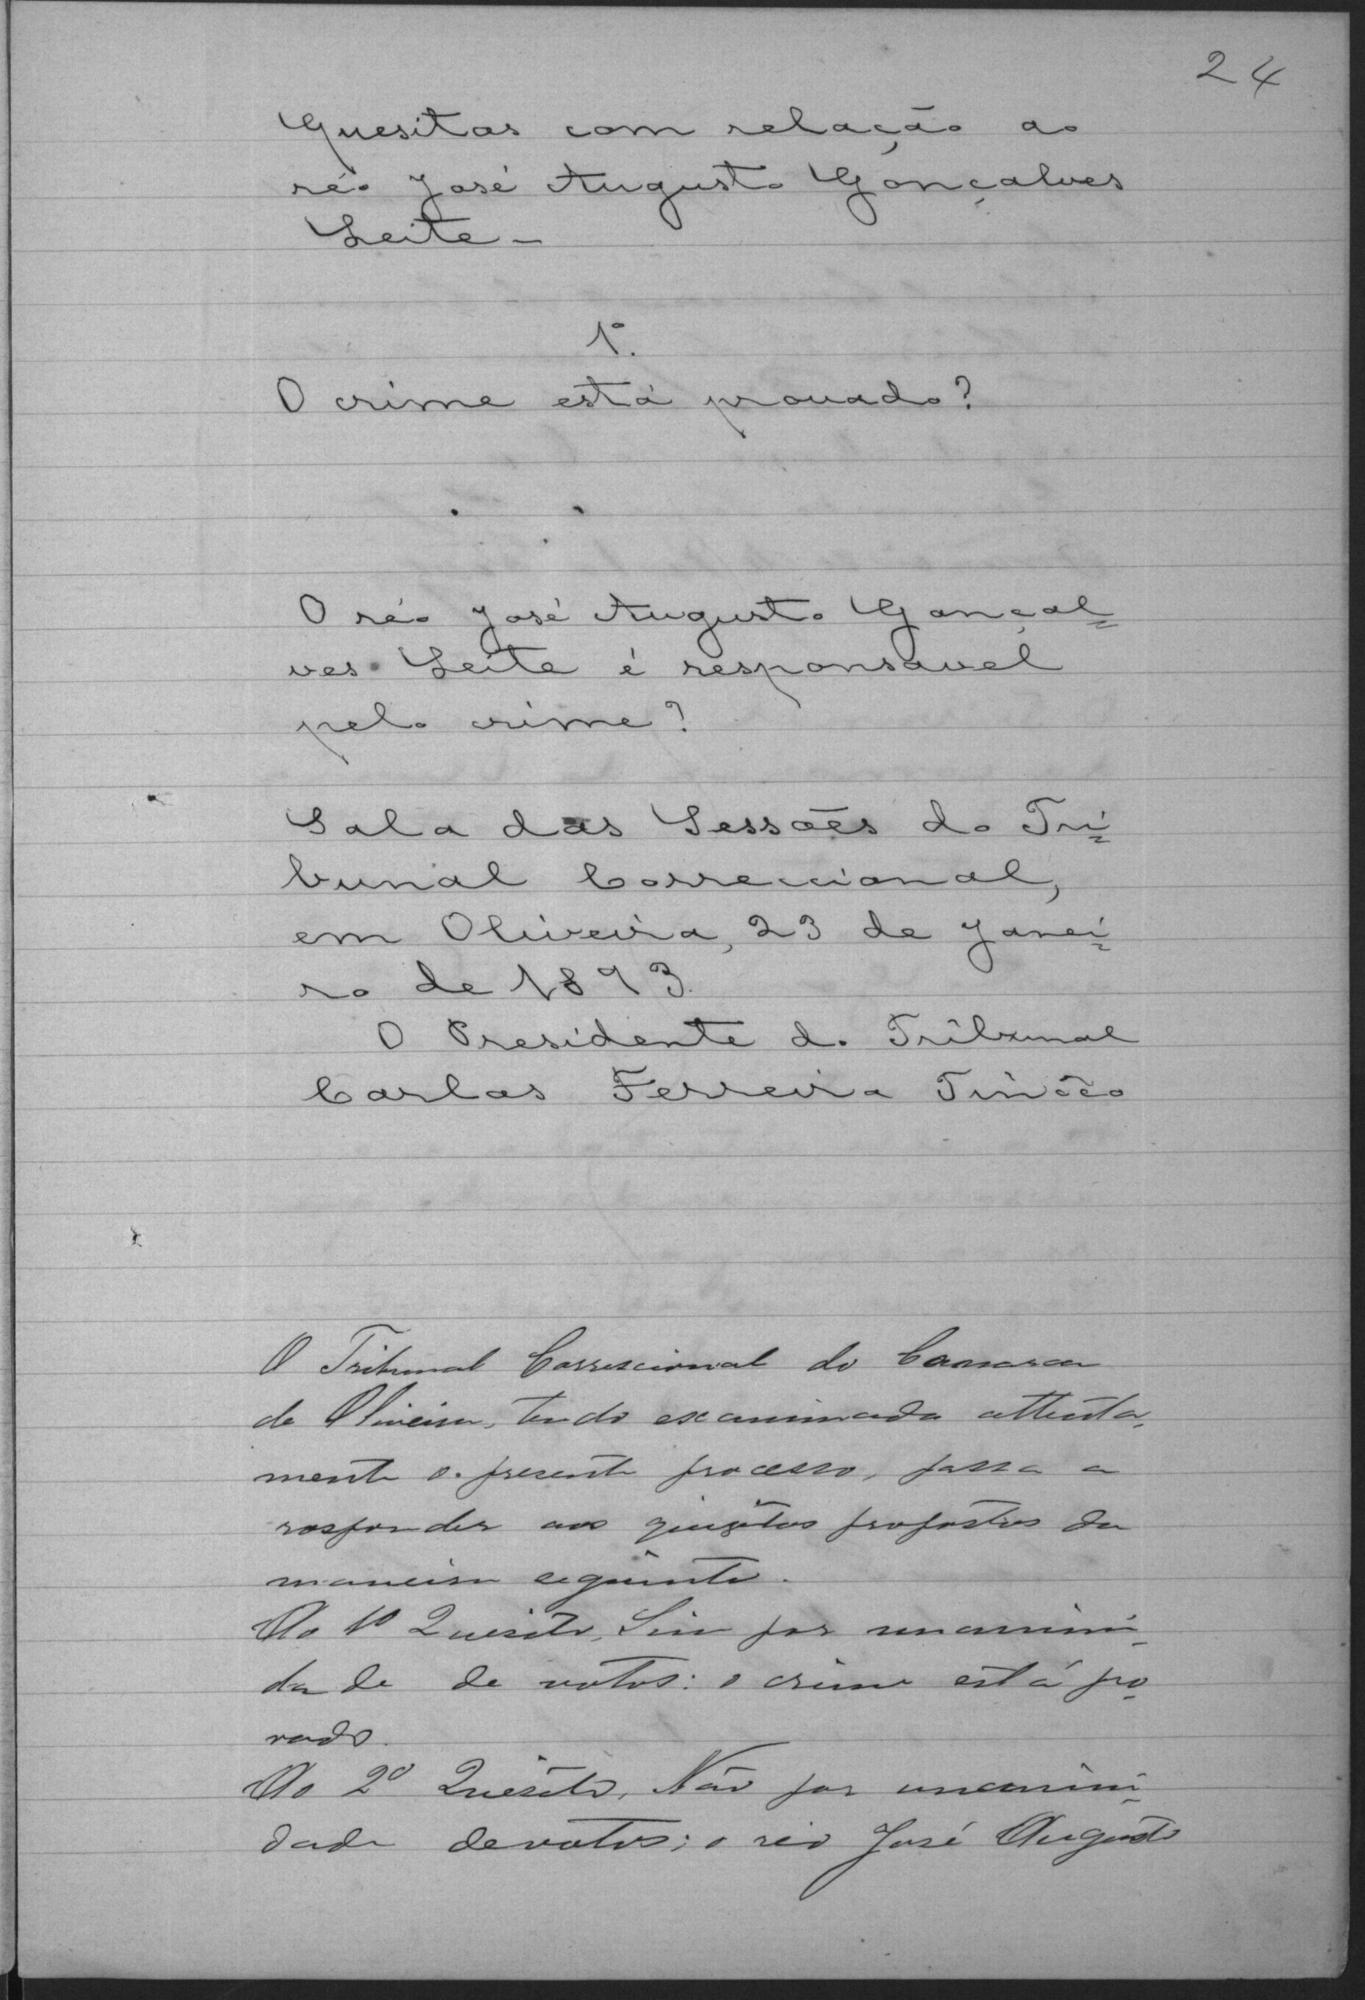 24
Quesitos com relação ao
réo José Augusto Gonçalves
Leite —
1º.
O crime está provado?
O réo José Augusto Gonçal=
ves Leite é responsavel
pelo crime?
Sala das Sessões do Tri=
bunal Correccional,
em Oliveira, 23 de Janei=
ro de 1893.
O Presidente do Tribunal
Carlos Ferreira Tinôco
O Tribunal Correccional da Comarca
de Oliveira, tendo examinado attenta-
mente o presente processo, passa a
responder aos quesitos propostos da
maneira seguinte.
Ao 1º Quesito, Sim por unanimi-
dade de votos: o crime está pro-
vado.
Ao 2º Quesito, Não por unanimi-
dade de votos; o réo José Augusto